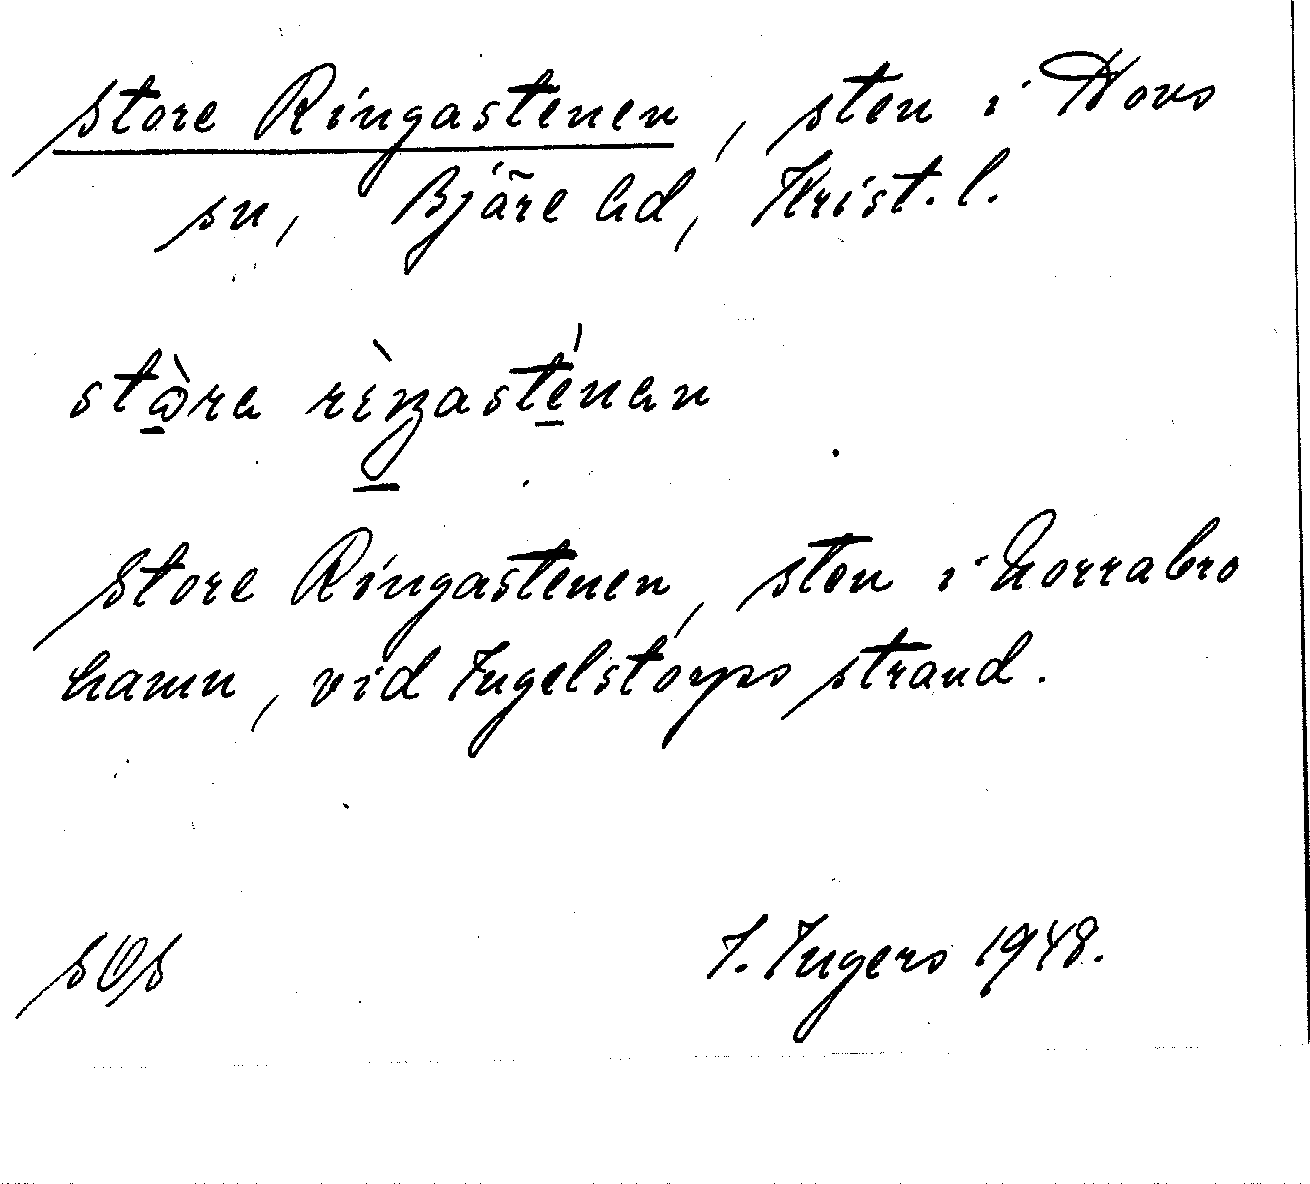 Store Ringastenen, sten i Hovs
sn, Bjäre hd, Krist. l.
stòra rìŋasténan
Store Ringastenen, sten i Norrabro
hamn, vid Ingelstorps strand.
SOS I. Ingers 1948.